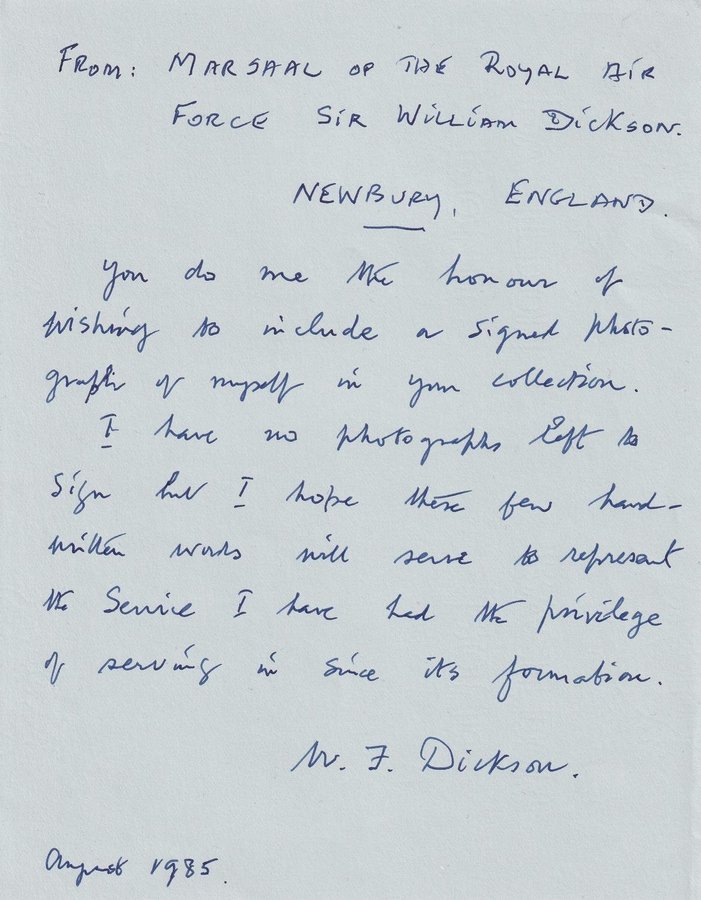 From: MARSAAL OF THE ROYAL AIR
FORCE SIR WILLIAM DICKSON.
NEWBURY, ENGLAND.
You do me the honour of
wishing to include a signed photo-
graph of myself in your collection.
I have no photographs left to
sign but I hope these few hand-
written words will serve to represent
the Service I have had the privilege
of serving in since its formation.
W. F. Dickson.
August 1985.